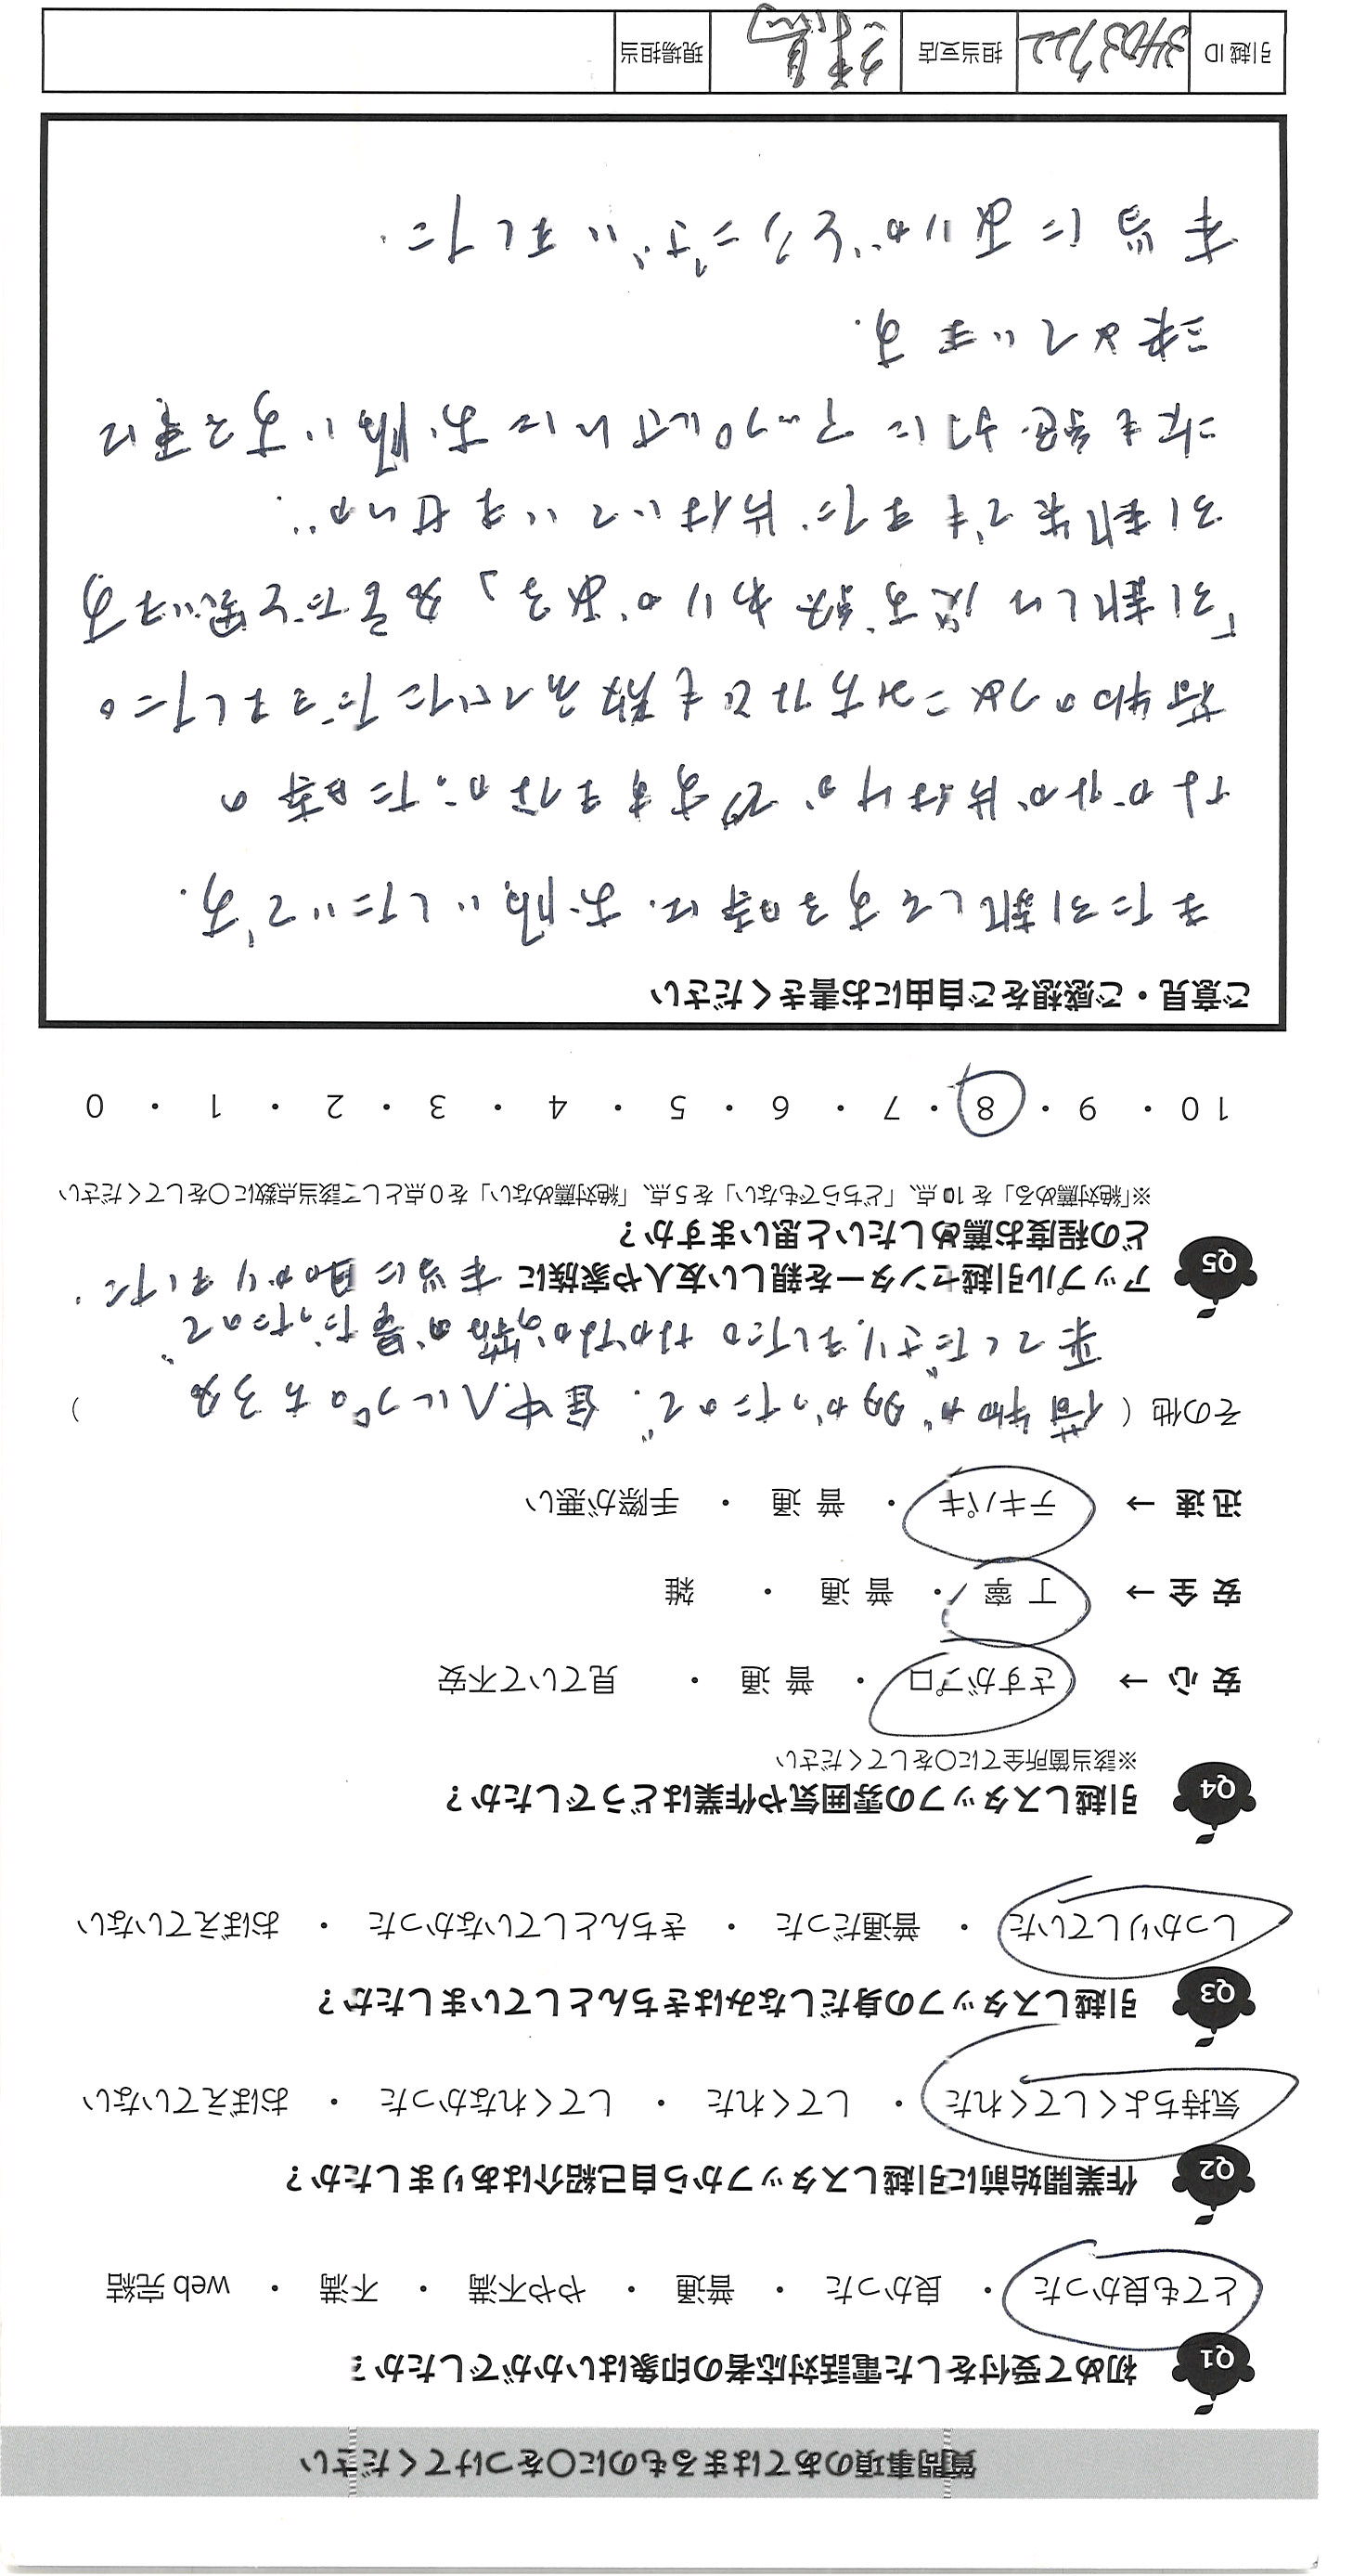 質問事項のあてはまるものに〇をつけてください
Q1 初めて受付をした電話対応者の印象はいかがでしたか?
とても良かった ・ 良かった ・ 普通 ・ やや不満 ・ 不満 ・ web 完結
Q2 作業開始前に引越しスタッフから自己紹介はありましたか?
気持ちよくしてくれた ・ してくれた ・ してくれなかった ・ おぼえていない
Q3 引越しスタッフの身だしなみはきちんとしていましたか?
しっかりしていた ・ 普通だった ・ きちんとしていなかった ・ おぼえていない
Q4 引越しスタッフの雰囲気や作業はどうでしたか?
※該当箇所全てに〇をしてください
安 心 → さすがプロ ・ 普 通 ・ 見ていて不安
安 全 → 丁 寧 ・ 普 通 ・ 雑
迅 速 → テキパキ ・ 普 通 ・ 手際が悪い
その他( 荷物が多かったので、途中からプロの方3名 )
来てくださりました。なかなかの荷が量だったので
本当に助かりました。
Q5 アップル引越センターを親しい友人や家族に
どの程度お薦めしたいと思いますか?
※「絶対薦める」を10点、「どちらでもない」を5点、「絶対薦めない」を0点として該当点数に〇をしてください
10 ・ 9 ・ 8 ・ 7 ・ 6 ・ 5 ・ 4 ・ 3 ・ 2 ・ 1 ・ 0
ご意見・ご感想をご自由にお書きください
また引越しをする時は、お願いしたいです。
なかなか片付けができすまなかった時の
荷物のつめこみ方なども教えていただきました。
「引越しは必ず終わりがある」名言だと思います
引越先でもまだ片付いていませんが…
次も絶対にアップルさんにお願いする事に
決めています。
本当にありがとうございました。
引越 ID 3403722 担当支店 練馬 現場担当